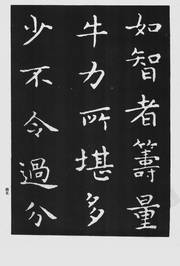 如智者籌量
牛力所堪多
少不令過分